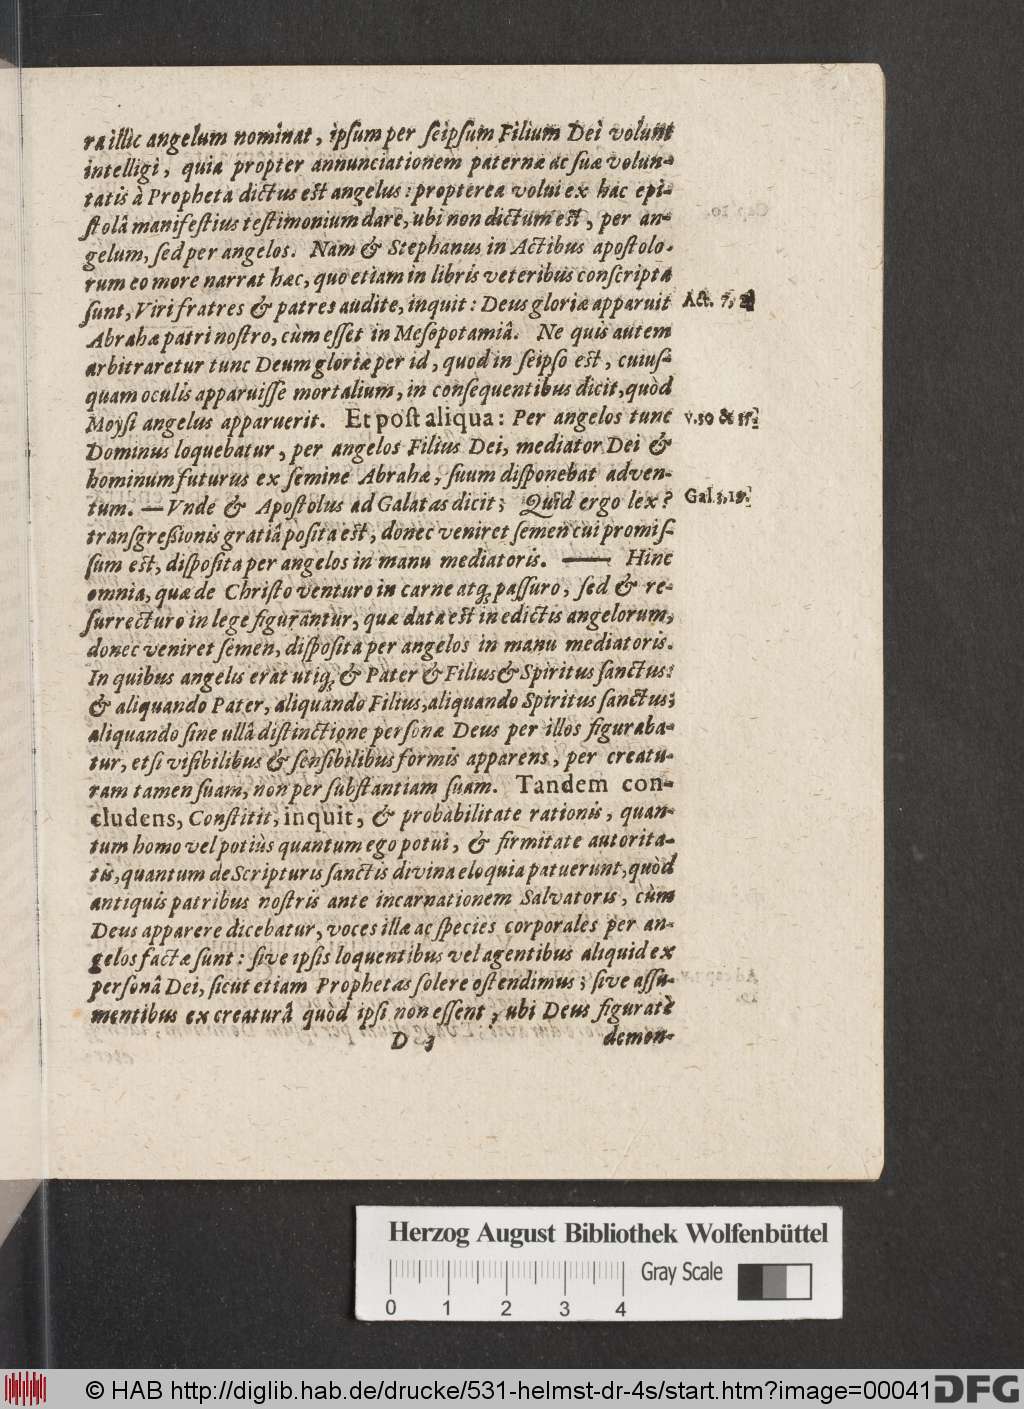 ra illîc angelum nominat, ipſum per ſeipſum Filium Dei volunt
intelligi, quia propter annunciationem paternæ ac ſuæ volun-
tatis à Propheta dictus est angelus: propterea volui ex hac epi-
ſtolâ manifeſtius teſtimonium dare, ubi non dictum est, per an-
gelum, ſed per angelos. Nam & Stephanus in Actibus apoſtolo-
rum eo more narrat hæc, quo etiam in libris veteribus conſcripta
ſunt, Viri fratres & patres audite, inquit: Deus gloriæ apparuit
Act. 7, 2
Abrahæ patri noſtro, cùm eſſet in Meſopotamiâ. Ne quis autem
arbitraretur tunc Deum gloriæ per id, quod in ſeipſo est, cuiuſ-
quam oculis apparuiſſe mortalium, in conſequentibus dicit, quòd
Moyſi angelus apparuerit. Et poſt aliqua: Per angelos tunc
v. 30 &
Dominus loquebatur, per angelos Filius Dei, mediator Dei &
hominum futurus ex ſemine Abrahæ, ſuum diſponebat adven-
tum. — Vnde & Apoſtolus ad Galatas dicit; Quid ergo lex?
Gal. 3, 19.
tranſgreßionis gratiâ poſita est, donec veniret ſemen cui promiſ-
ſum est, diſpoſita per angelos in manu mediatoris. —— Hinc
omnia, quæ de Chriſto venturo in carne atq; paſſuro, ſed & re-
ſurrecturo in lege figurantur, quæ data est in edictis angelorum,
donec veniret ſemen, diſpoſita per angelos in manu mediatoris.
In quibus angelis erat utiq; & Pater & Filius & Spiritus ſanctus:
& aliquando Pater, aliquando Filius, aliquando Spiritus ſanctus;
aliquando ſine ullâ diſtinctione perſonæ Deus per illos figuraba-
tur, etſi viſibilibus & ſenſibilibus formis apparens, per creatu-
ram tamen ſuam, non per ſubſtantiam ſuam. Tandem con-
cludens, Conſtitit, inquit, & probabilitate rationis, quan-
tum homo vel potiùs quantum ego potui, & firmitate autorita-
tis, quantum de Scripturis ſanctis divina eloquia patuerunt, quòd
antiquis patribus noſtris ante incarnationem Salvatoris, cùm
Deus apparere dicebatur, voces illæ ac ſpecies corporales per an-
gelos factæ ſunt: ſive ipſis loquentibus vel agentibus aliquid ex
perſonâ Dei, ſicut etiam Prophetas ſolere oſtendimus; ſive aſſu-
mentibus ex creaturâ quòd ipſi non eſſent, ubi Deus figuratè
D 3 demon-
Herzog August Bibliothek Wolfenbüttel
Gray Scale
0 1 2 3 4
© HAB http://diglib.hab.de/drucke/531-helmst-dr-4s/start.htm?image=00041
DFG